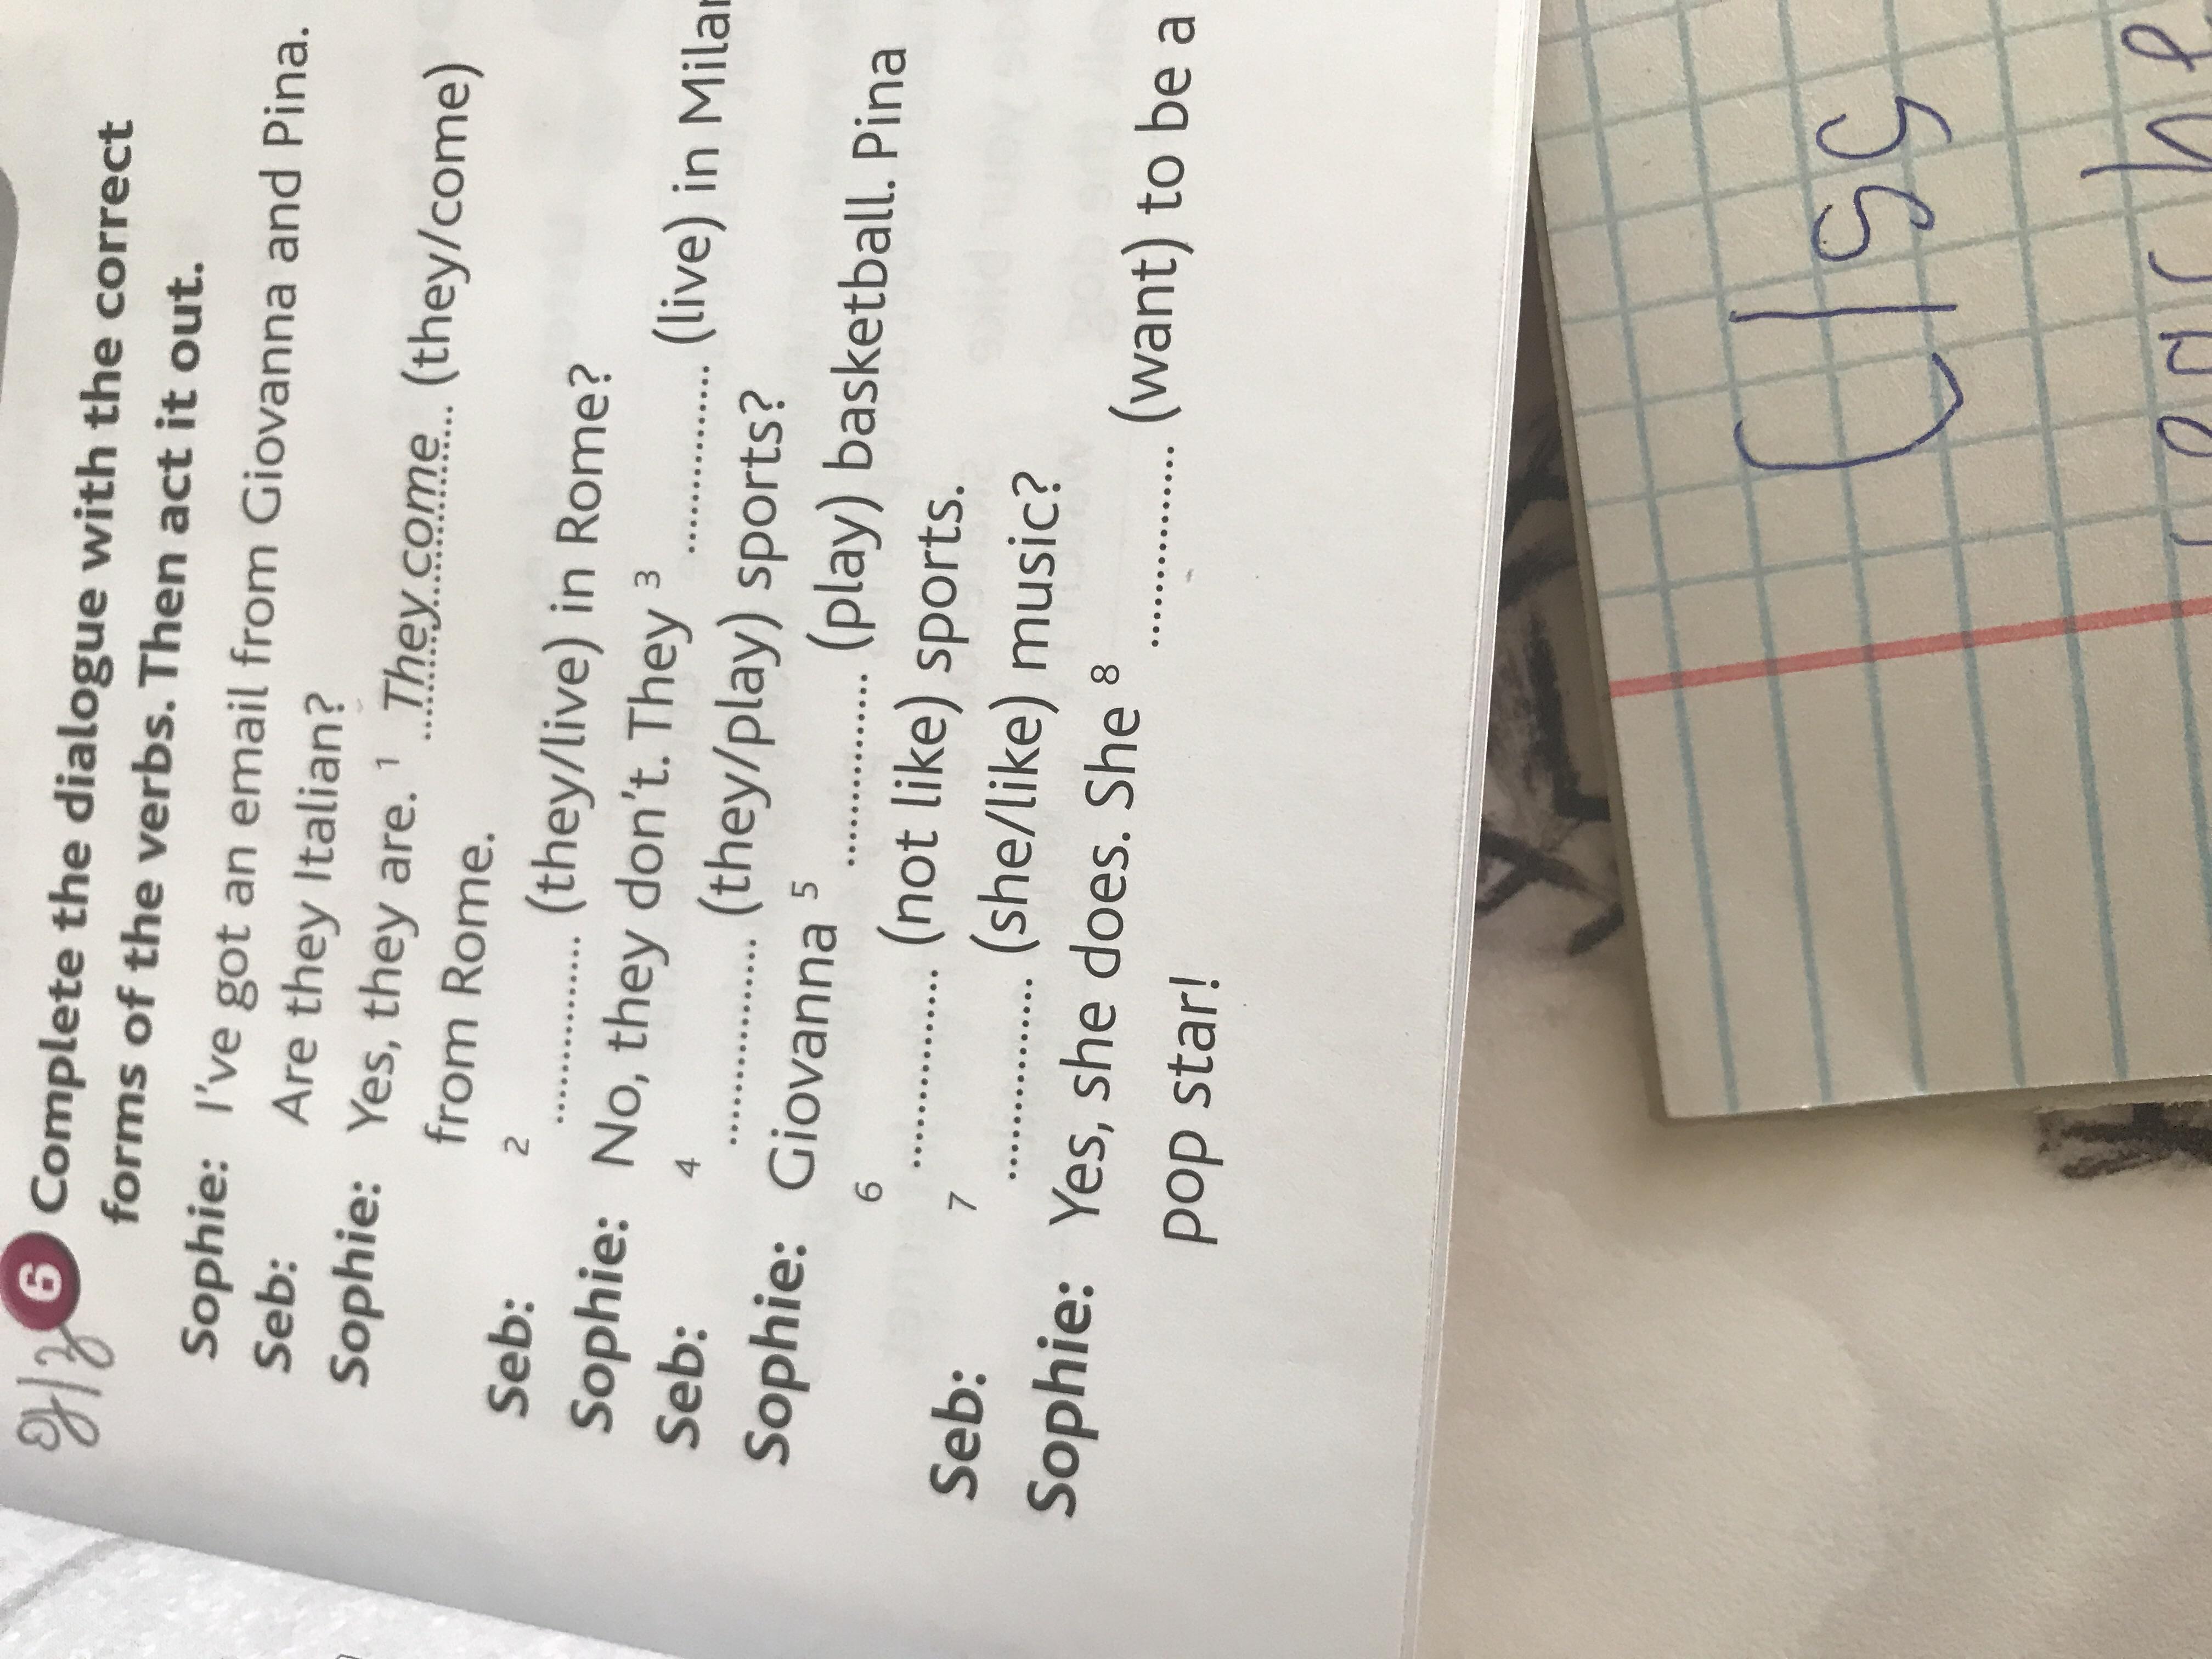 Д/з
6 Complete the dialogue with the correct
forms of the verbs. Then act it out.
Sophie: I've got an email from Giovanna and Pina.
Seb: Are they Italian?
Sophie: Yes, they are. 1 ...They come... (they/come)
from Rome.
Seb: 2 ............... (they/live) in Rome?
Sophie: No, they don't. They 3 ............... (live) in Milan
Seb: 4 ............... (they/play) sports?
Sophie: Giovanna 5 ............... (play) basketball. Pina
6 ............... (not like) sports.
Seb: 7 ............... (she/like) music?
Sophie: Yes, she does. She 8 ............... (want) to be a
pop star!